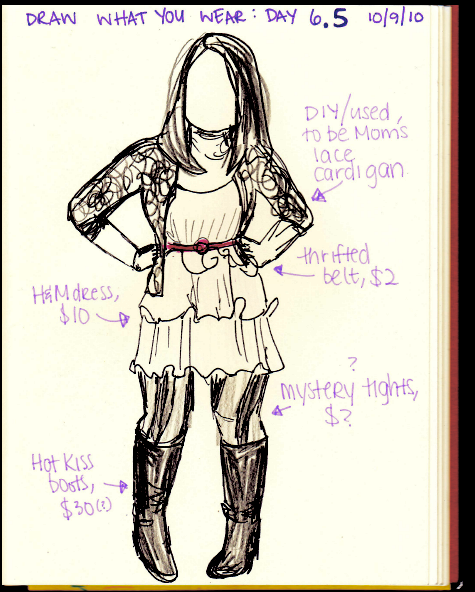 DRAW WHAT YOU WEAR: DAY 6.5 10/9/10
DIY/used,
to be Mom's
lace
cardigan
thrifted
belt, $2
H&M dress,
$10
?
mystery tights,
$?
Hot Kiss
boots,
$30(?)